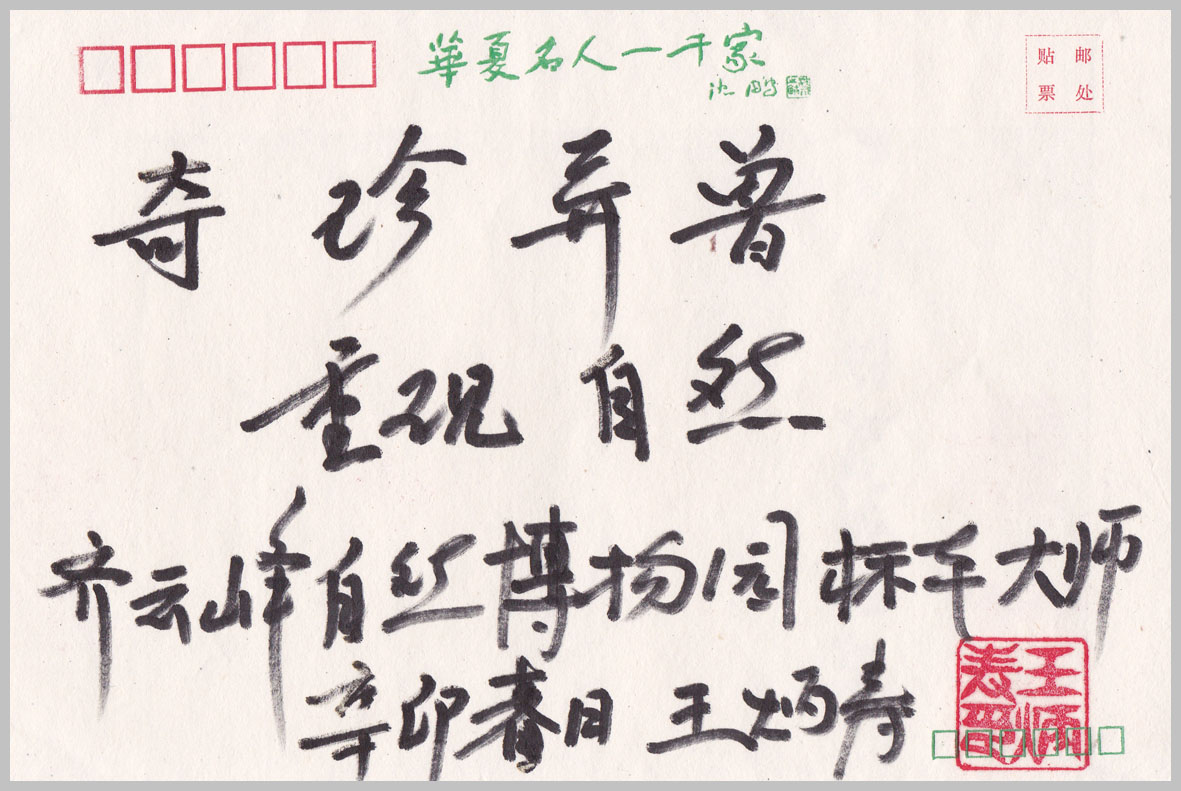 華夏名人一千家
沈鹏
贴 邮
票 处
奇珍异兽
重现自然
齐云峰自然博物园标本大师
辛卯春日 王炳寿